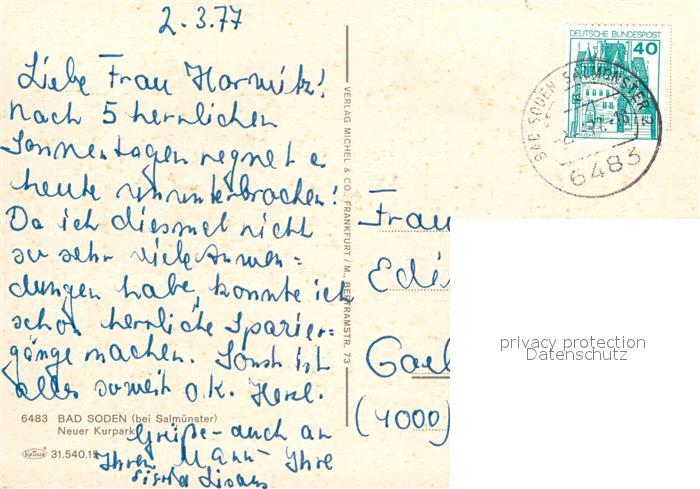 2.3.77
Liebe Frau Harmitz!
Nach 5 herrlichen
Sonnentagen regnet e
heute ununterbrochen!
Da ich diesmal nicht
so sehr viele Anwen=
dungen habe, konnte ich
schon herrliche Spazier=
gänge machen. Sonst ist
alles soweit o.K. Herzl.
Grüße - auch an
Ihren Mann - Ihre
6483 BAD SODEN (bei Salmünster)
Neuer Kurpark
Krüger 31.540.15
VERLAG MICHEL & CO., FRANKFURT / M., BERTRAMSTR. 73
DEUTSCHE BUNDESPOST
40
BAD SODEN-SALMÜNSTER 2
6483
Frau
Edi
Gael
(4000)
privacy protection
Datenschutz